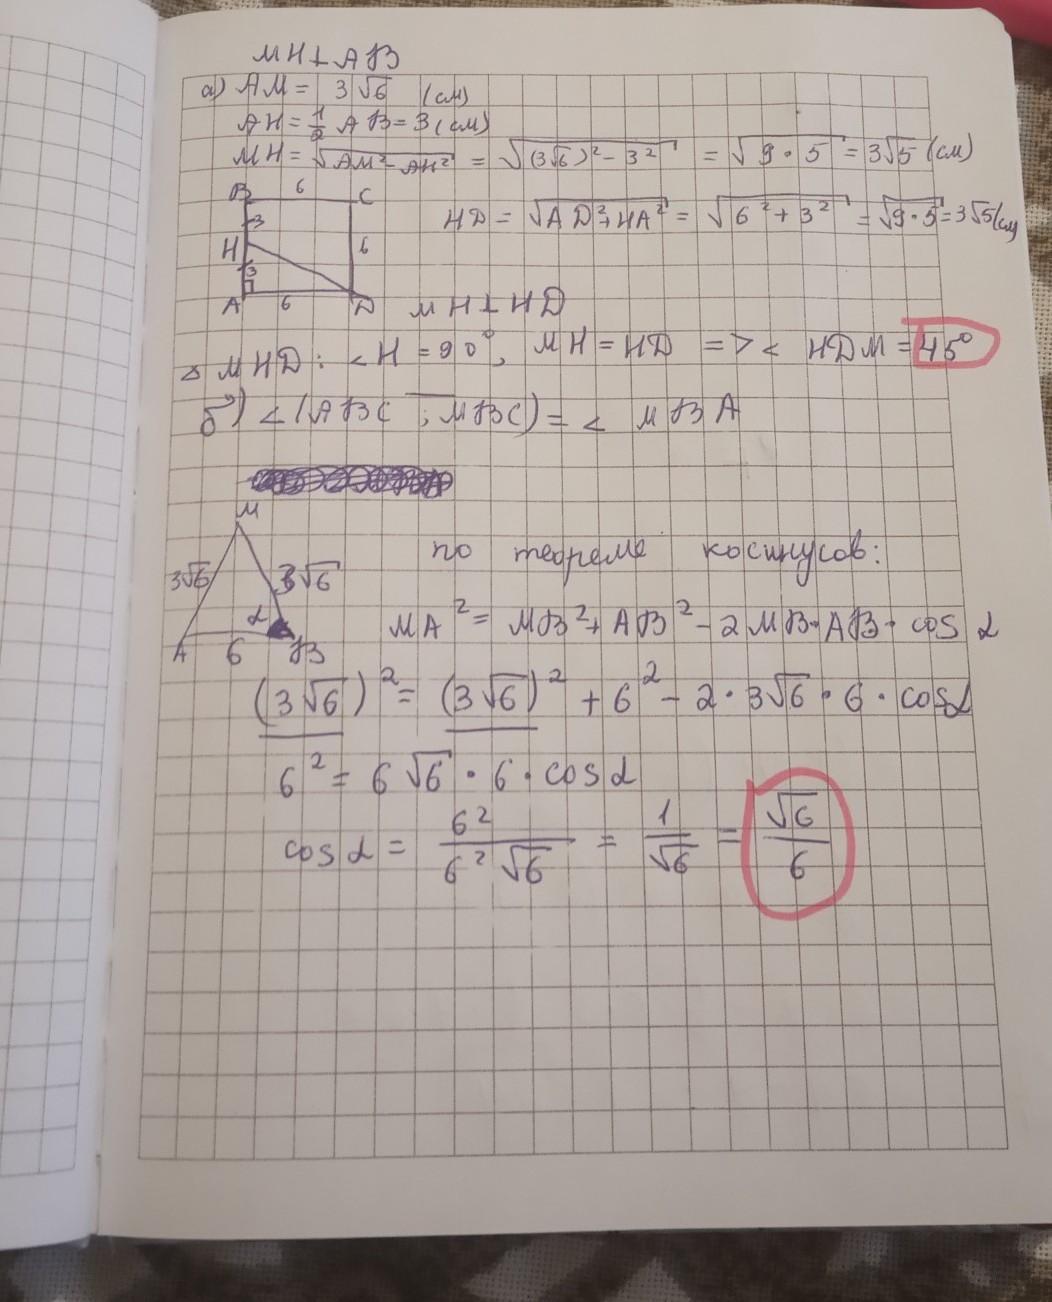 MH⊥AB
а) AM = 3√6 (см)
AH = 1/2 AB = 3 (см)
MH = √(AM² - AH²) = √((3√6)² - 3²) = √(9 · 5) = 3√5 (см)
B 6 C
3
H 6
3
A 6 D
HD = √(AD² + HA²) = √(6² + 3²) = √(9 · 5) = 3√5 (см)
MH⊥HD
△ MHD: <H = 90°, MH = HD => < HDM = 45°
б) <(ABC ; MBC) = < MBA
M
3√6 3√6
α
A 6 B
по теореме косинусов:
MA² = MB² + AB² - 2MB · AB · cos α
(3√6)² = (3√6)² + 6² - 2 · 3√6 · 6 · cosα
6² = 6√6 · 6 · cosα
cosα = 6²/(6²√6) = 1/√6 = √6/6